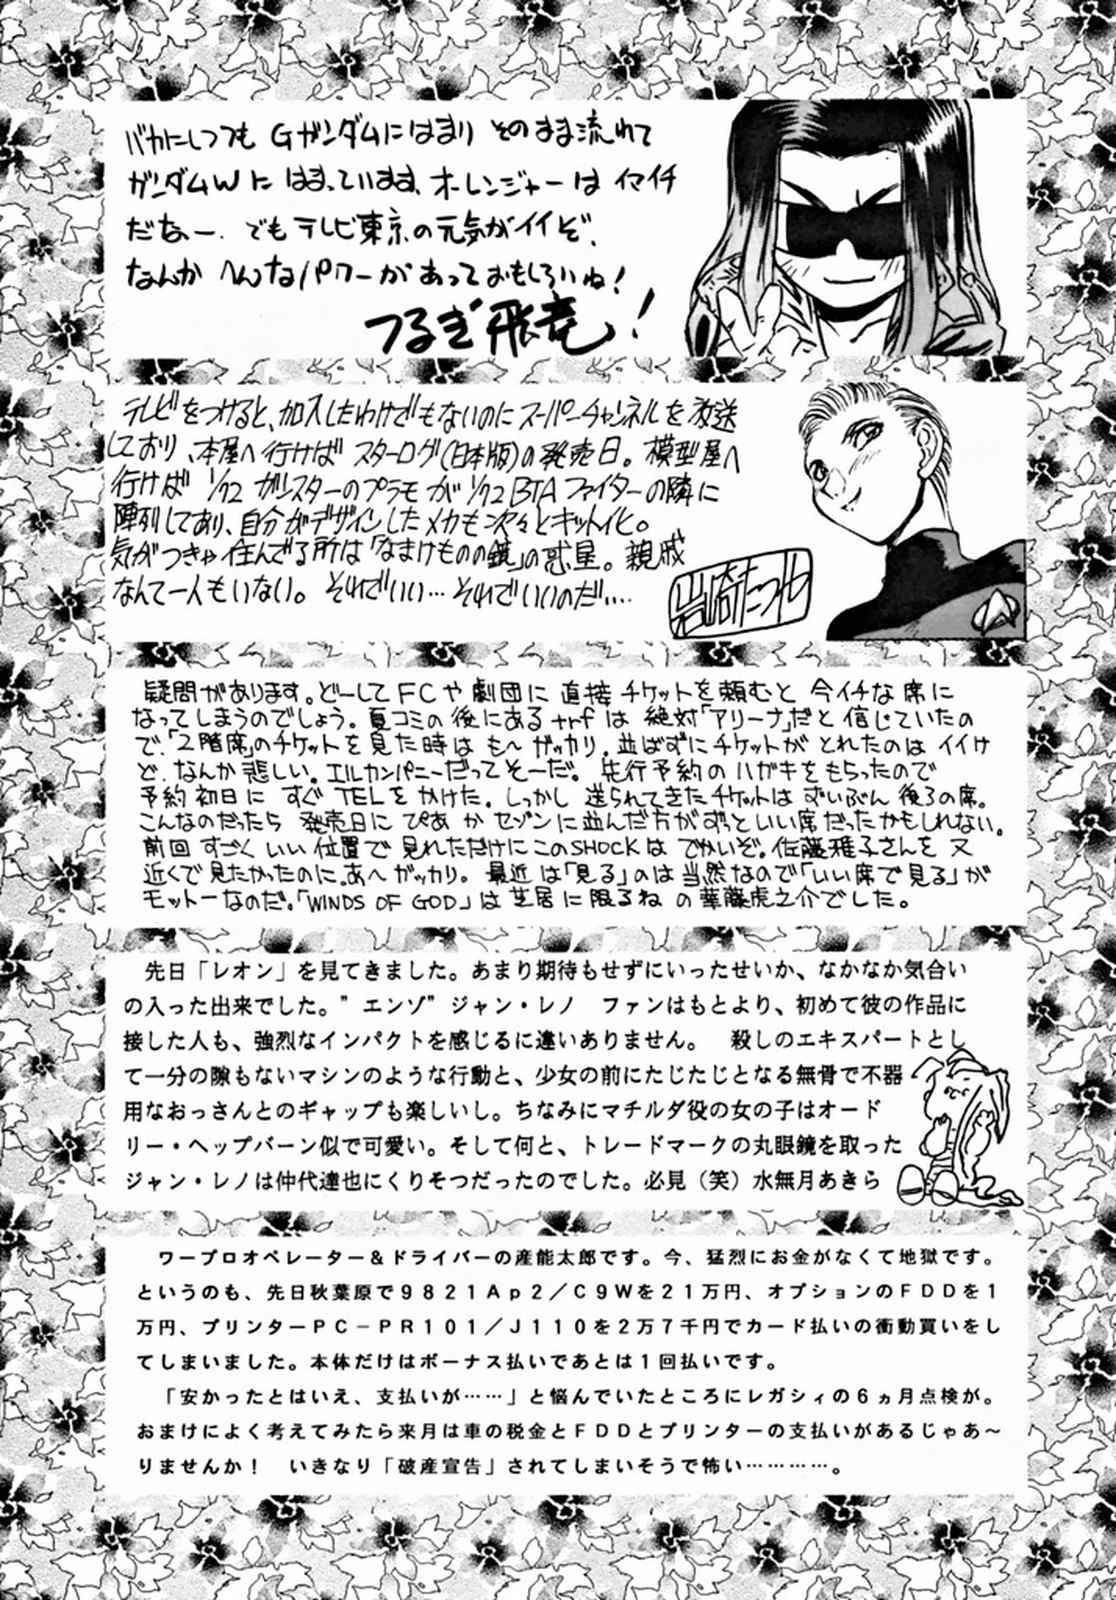 バカにしつつも Gガンダムにはまり そのまま流れて
ガンダムWに はまっています、オーレンジャーは イマイチ
だなー. でもテレビ東京の元気がイイぞ、
なんか へんなパワーがあっておもしろいね!
つるぎ飛竜!
テレビをつけると、加入したわけでもないのにスーパーチャンネルを放送
しており、本屋へ行けば スターログ(日本版)の発売日。模型屋へ
行けば 1/72 ガリスターのプラモが 1/72 BTAファイターの隣に
陣列してあり、自分がデザインしたメカも次々とキットイヒ。
気がつきゃ住んでる所は「なまけものの鏡」の惑星。親戚
なんて一人もいない。それでいい…それでいいのだ‥‥
岩崎たつや
疑問があります。どーしてFCや劇団に直接チケットを頼むと今イチな席に
なってしまうのでしょう。夏コミの後にあるtrfは絶対「アリーナ」だと信じていたの
で、「2階席」のチケットを見た時はも〜ガッカリ。並ばずにチケットがとれたのはイイけ
ど、なんか悲しい。エルカンパニーだってそーだ。先行予約のハガキをもらったので
予約初日にすぐTELをかけた。しっかし送られてきたチケットはずいぶん後ろの席。
こんなのだったら発売日にぴあかセゾンに並んだ方がずっといい席だったかもしれない。
前回すごくいい位置で見れただけにこのSHOCKはでかいぞ。佐藤雅子さんを又
近くで見たかったのに。あ〜ガッカリ。最近は「見る」のは当然なので「いい席で見る」が
モットーなのだ。「WINDS OF GOD」は芝居に限るねの華藤虎之介でした。
先日「レオン」を見てきました。あまり期待もせずにいったせいか、なかなか気合い
の入った出来でした。"エンゾ"ジャン・レノ　ファンはもとより、初めて彼の作品に
接した人も、強烈なインパクトを感じるに違いありません。　殺しのエキスパートとし
て一分の隙もないマシンのような行動と、少女の前にたじたじとなる無骨で不器
用なおっさんとのギャップも楽しいし。ちなみにマチルダ役の女の子はオード
リー・ヘップバーン似で可愛い。そして何と、トレードマークの丸眼鏡を取った
ジャン・レノは仲代達也にくりそつだったのでした。必見（笑）水無月あきら
ワープロオペレーター＆ドライバーの産能太郎です。今、猛烈にお金がなくて地獄です。
というのも、先日秋葉原で９８２１Ａｐ２／Ｃ９Ｗを２１万円、オプションのＦＤＤを１
万円、プリンターＰＣ－ＰＲ１０１／Ｊ１１０を２万７千円でカード払いの衝動買いをし
てしまいました。本体だけはボーナス払いであとは１回払いです。
「安かったとはいえ、支払いが……」と悩んでいたところにレガシィの６ヵ月点検が。
おまけによく考えてみたら来月は車の税金とＦＤＤとプリンターの支払いがあるじゃあ〜
りませんか！　いきなり「破産宣告」されてしまいそうで怖い…………。